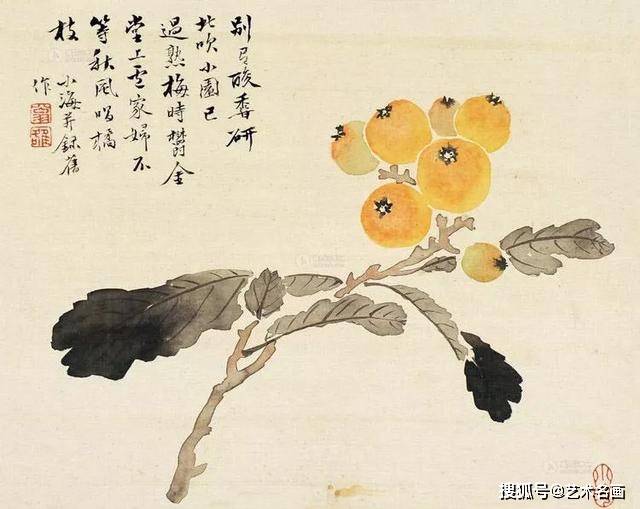 别有酸香研
北吹小園已
過熟梅時欝金
堂上盧家婦不
等秋風唱橘
枝 小海并錄舊
作
搜狐号@艺术名画